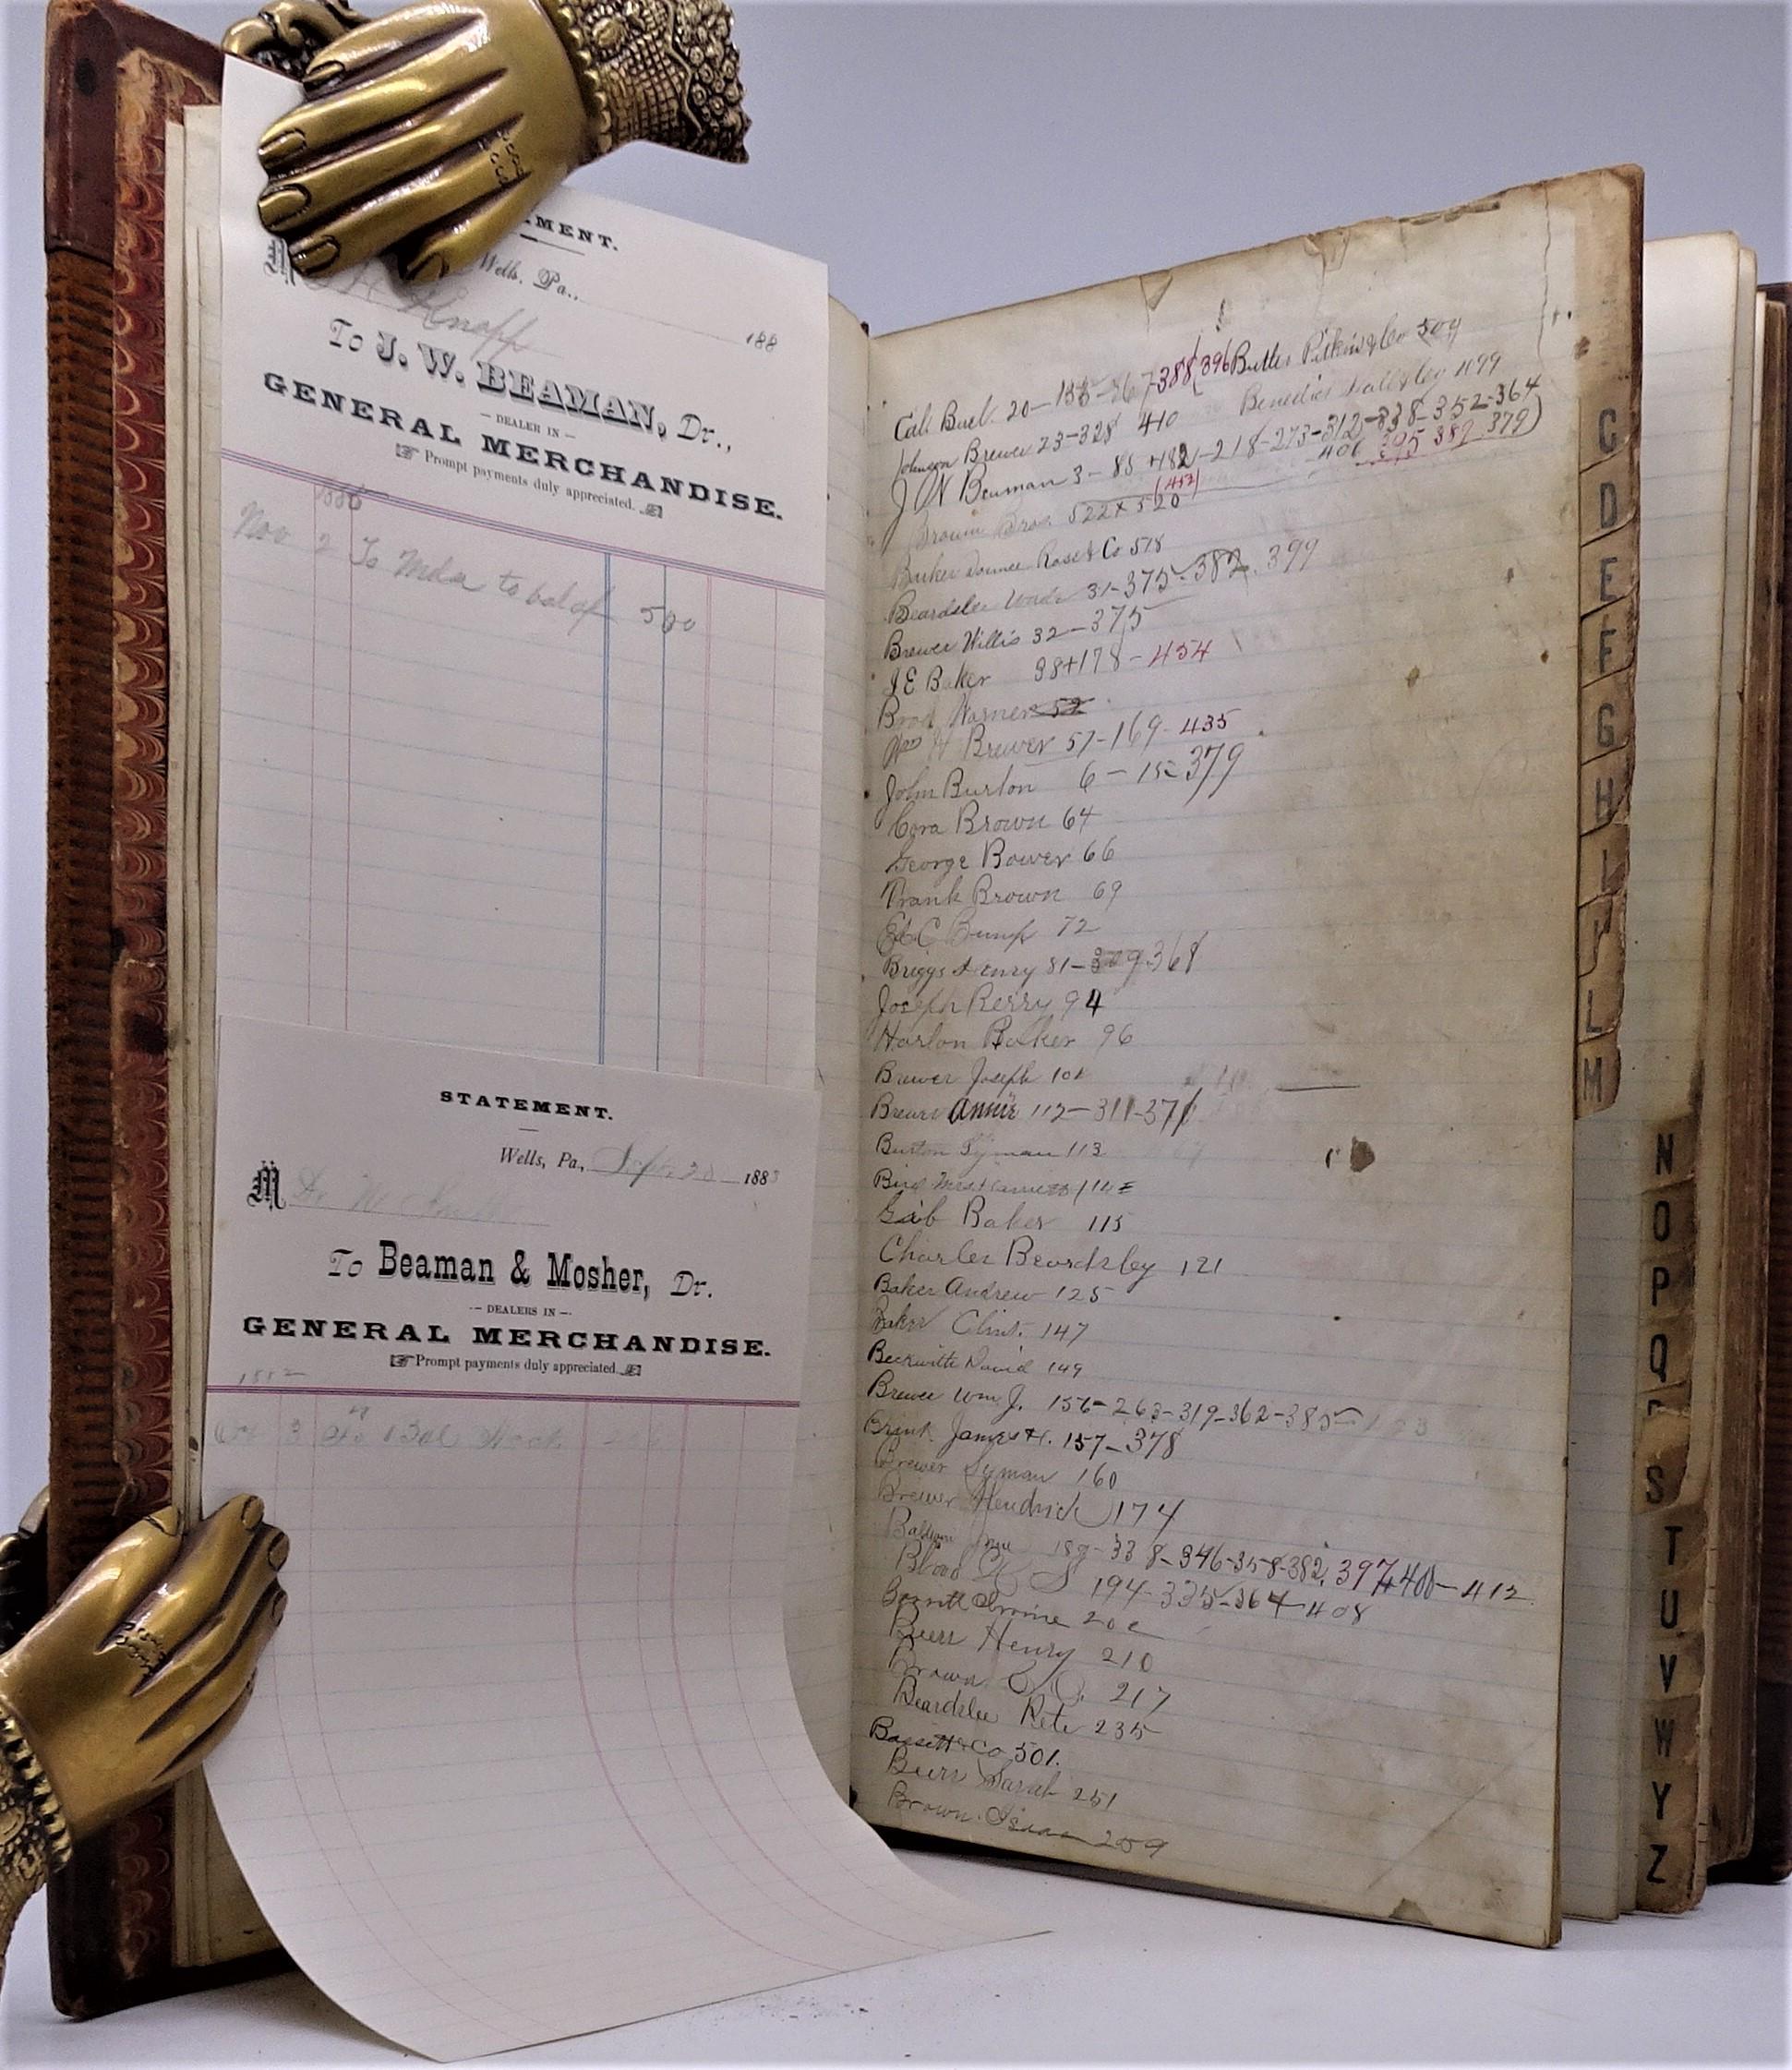 MENT.
M Knapp
Wells, Pa.,
188
To J. W. BEAMAN, Dr.,
— DEALER IN —
GENERAL MERCHANDISE.
Prompt payments duly appreciated.
1886
Nov 2 To Mdse to bal of 500
STATEMENT.
Wells, Pa., Sept 20 1883
M
To Beaman & Mosher, Dr.
-- DEALERS IN --
GENERAL MERCHANDISE.
Prompt payments duly appreciated.
1882
Oct 3 To
Buel 20 388 396 Butler Pitkin & Co 504
Johnson Brewer 23-328 410 Benedict 499
J W Beaman 3-85+182-218-273-312-338-352-364
406 395 389 379)
Brown Bros. 522+520 (453)
Barker Rose & Co 518
Beardslee Wade 31-375-382. 399
Brewer Willis 32-375
J E Baker 38+178-454
Brod Warner 52
Wm H Brewer 57-169-435
John Burton 6-15-379
Cora Brown 64
George Bower 66
Frank Brown 69
E C Bump 72
Briggs Henry 81- 368
Joseph Berry 94
Harlon Baker 96
Brewer Joseph 101
Brewer Annie 112-311-371
Burton Lyman 113
Bird Mrs 114
Gib Baker 115
Charles Beardsley 121
Baker Andrew 125
Baker Clint. 147
Beckwith David 149
Brewer Wm J. 156-263-319-362-385
Brink James H. 157-378
Brewer Lyman 160
Brewer Hendrick 174
188-338-346-358-382, 397+400-412.
Blood 194-335-364-408
Irvine 20
Burr Henry 210
Brown 217
Beardslee Pete 235
Bassett & Co 501.
Burr Sarah 251
Brown Isaac 259
C
D
E
F
G
H
I
J
L
M
N
O
P
Q
S
T
U
V
W
Y
Z